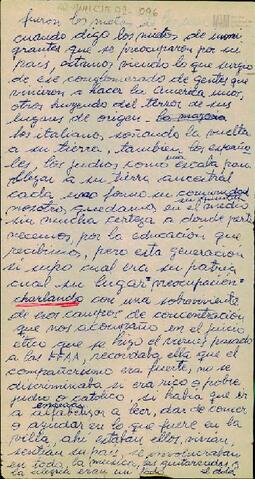 fueron los nietos de
cuando digo los nietos de inmi
grantes que se preocuparon por su
pais, estamos viendo lo que surgio
de ese conglomerado de gentes que
vinieron a hacer la America unos,
otros huyendo del terror de sus
lugares de origen
los italianos, soñando la vuelta
a su tierra, tambien los españo
les, los judios como una escala para
llegar a su tierra ancestral
cada uno formo su comunidad
nosotros quedamos en el medio
sin mucha certeza a donde perte
necemos por la educación que
recibimos, pero esta generacion
si supo cual era su patria
cual su lugar
charlando con una sobreviviente
de los campos de concentración
que nos acompaño en el juicio
etico que se hizo el viernes pasado
a las FFAA, recordaba ella que el
compañerismo era fuerte, no se
discriminaba si era rico o pobre
judio o catolico, si habia que ir
a alfabetizar, a leer, dar de comer
o ayudar en lo que fuere en la
villa, ahi estaban ellos, vivian,
sentian su pais, se involucraban
en todo, la musica, las guitarreadas
la alegria eran un todo